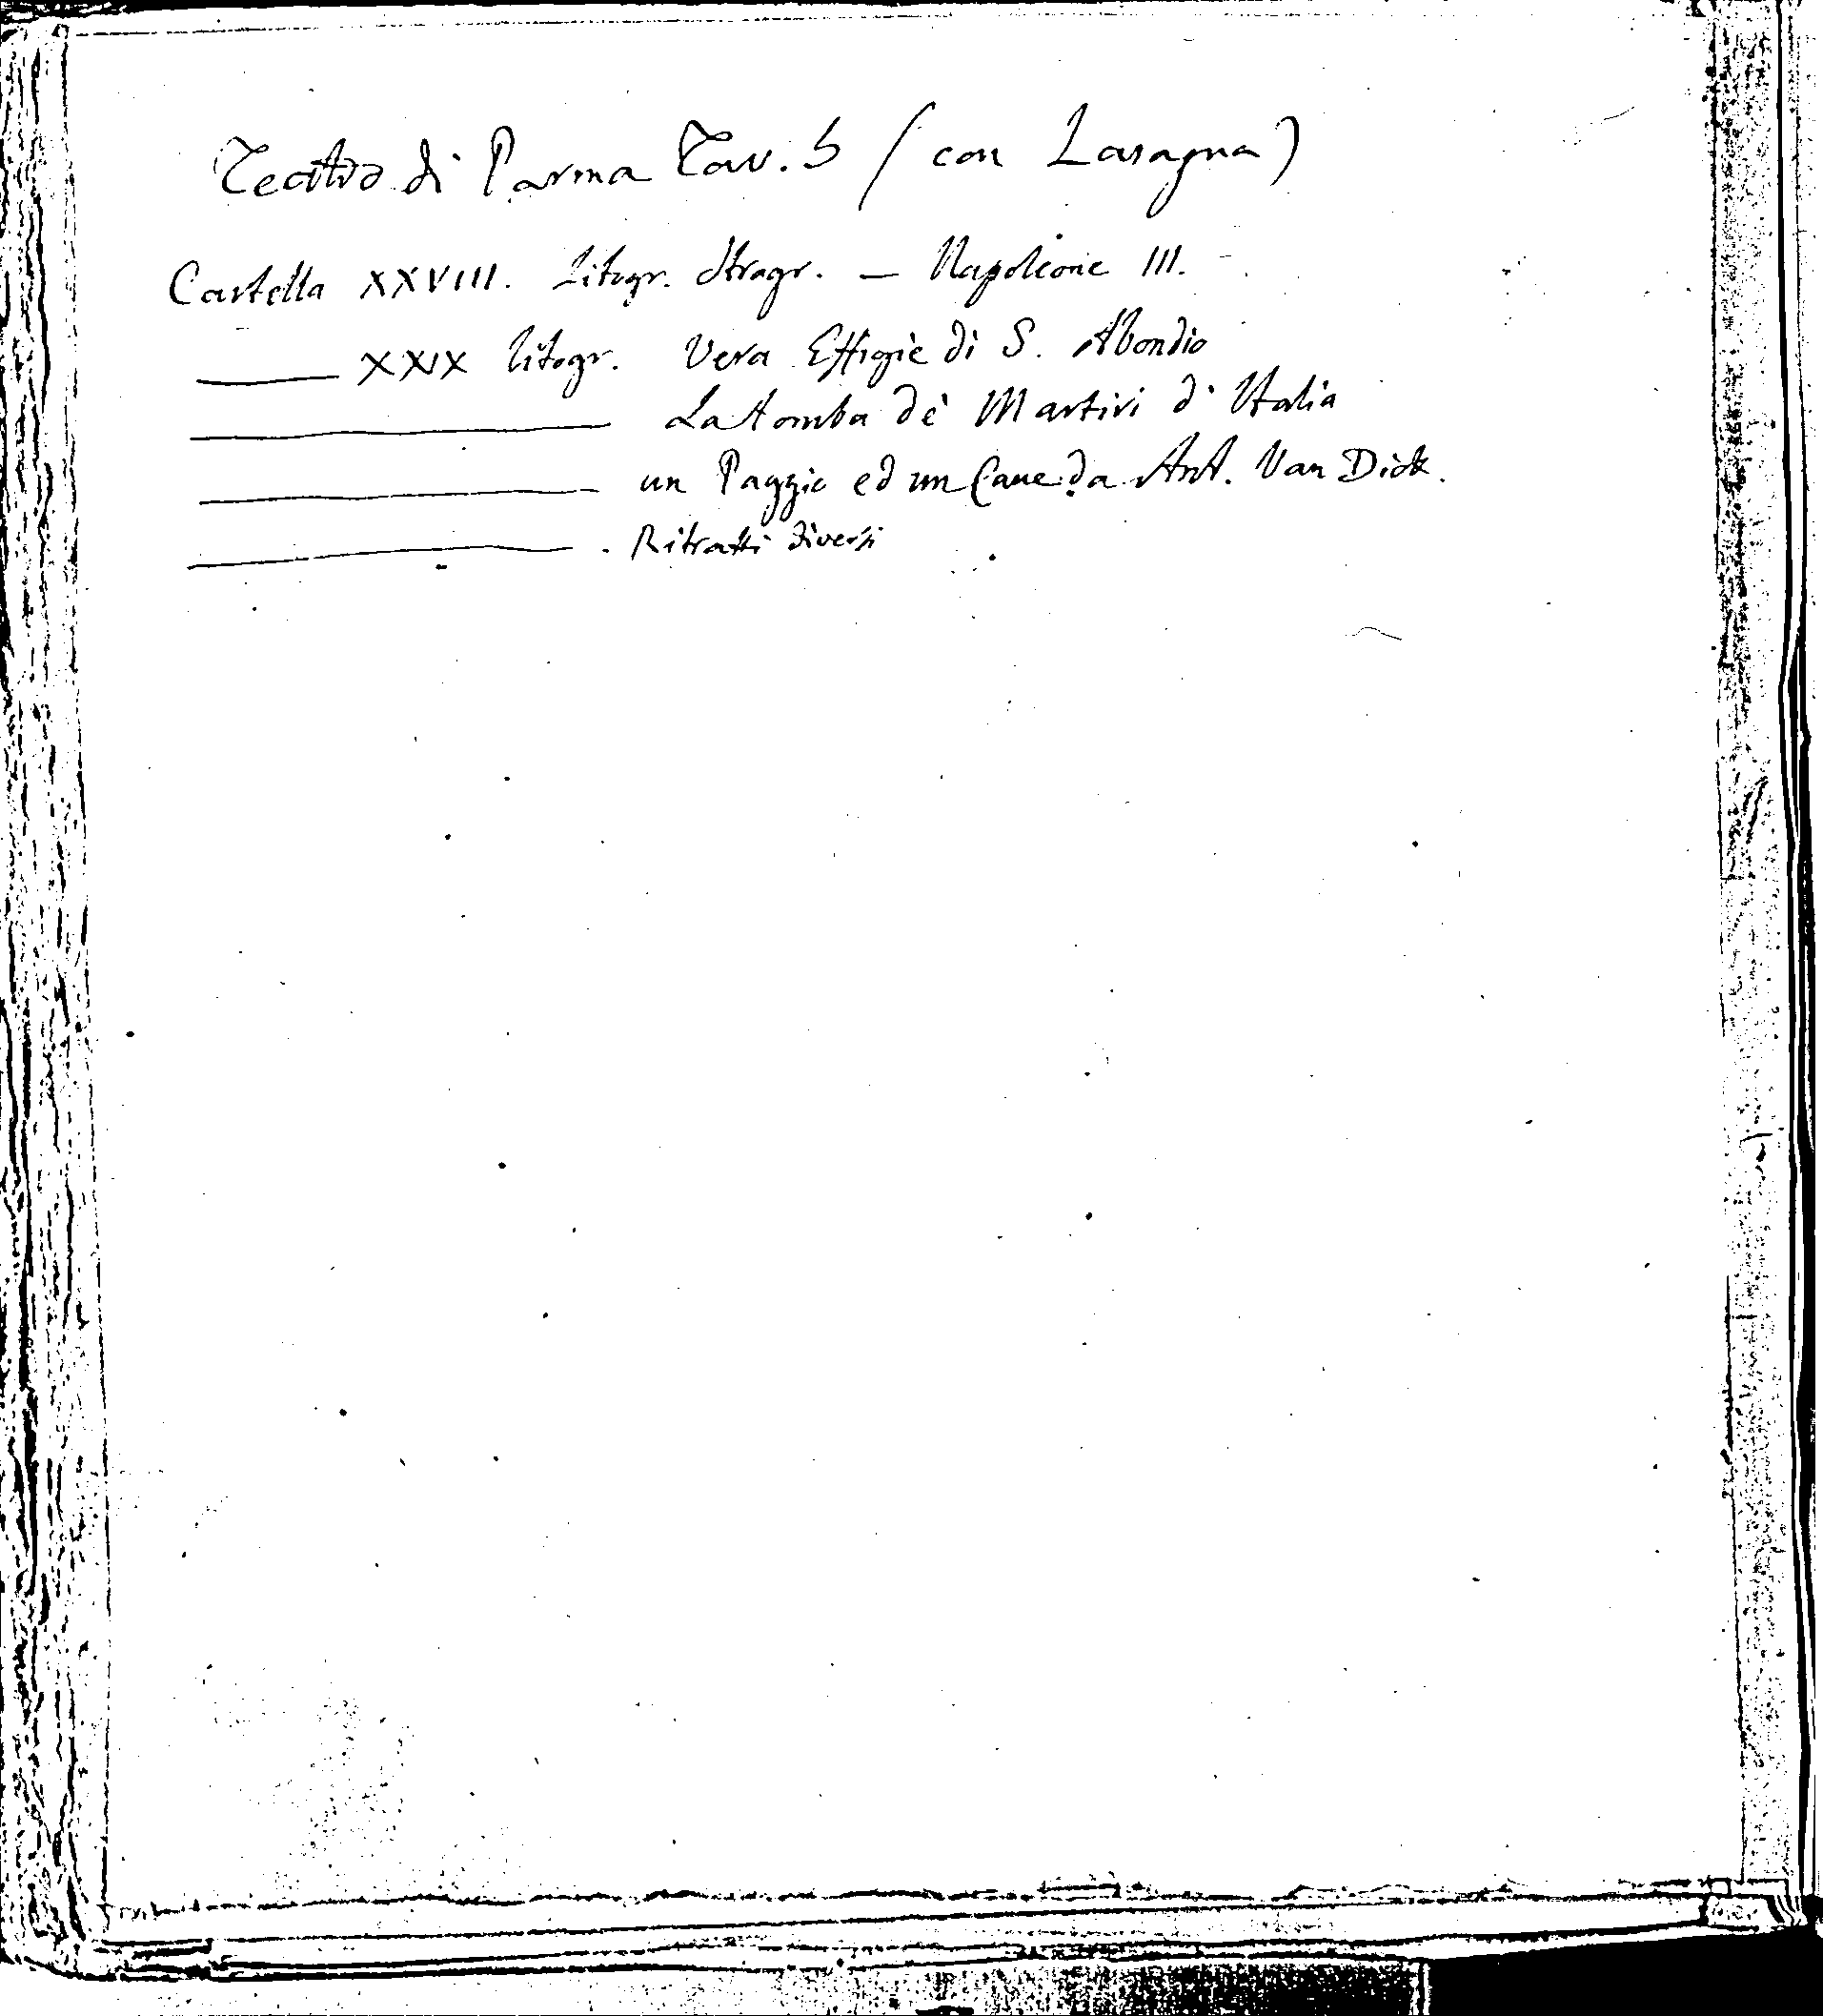 Teatro di Parma Tav. 5 (con Lasagna)
Cartella XXVIII. Litogr. Stragr. — Napoleone III.
——— XXIX Litogr. Vera Effigie di S. Abondio
——— La tomba de' Martiri d'Italia
——— un Paggio ed un Cane da Ant. Van Dick.
———. Ritratti diversi